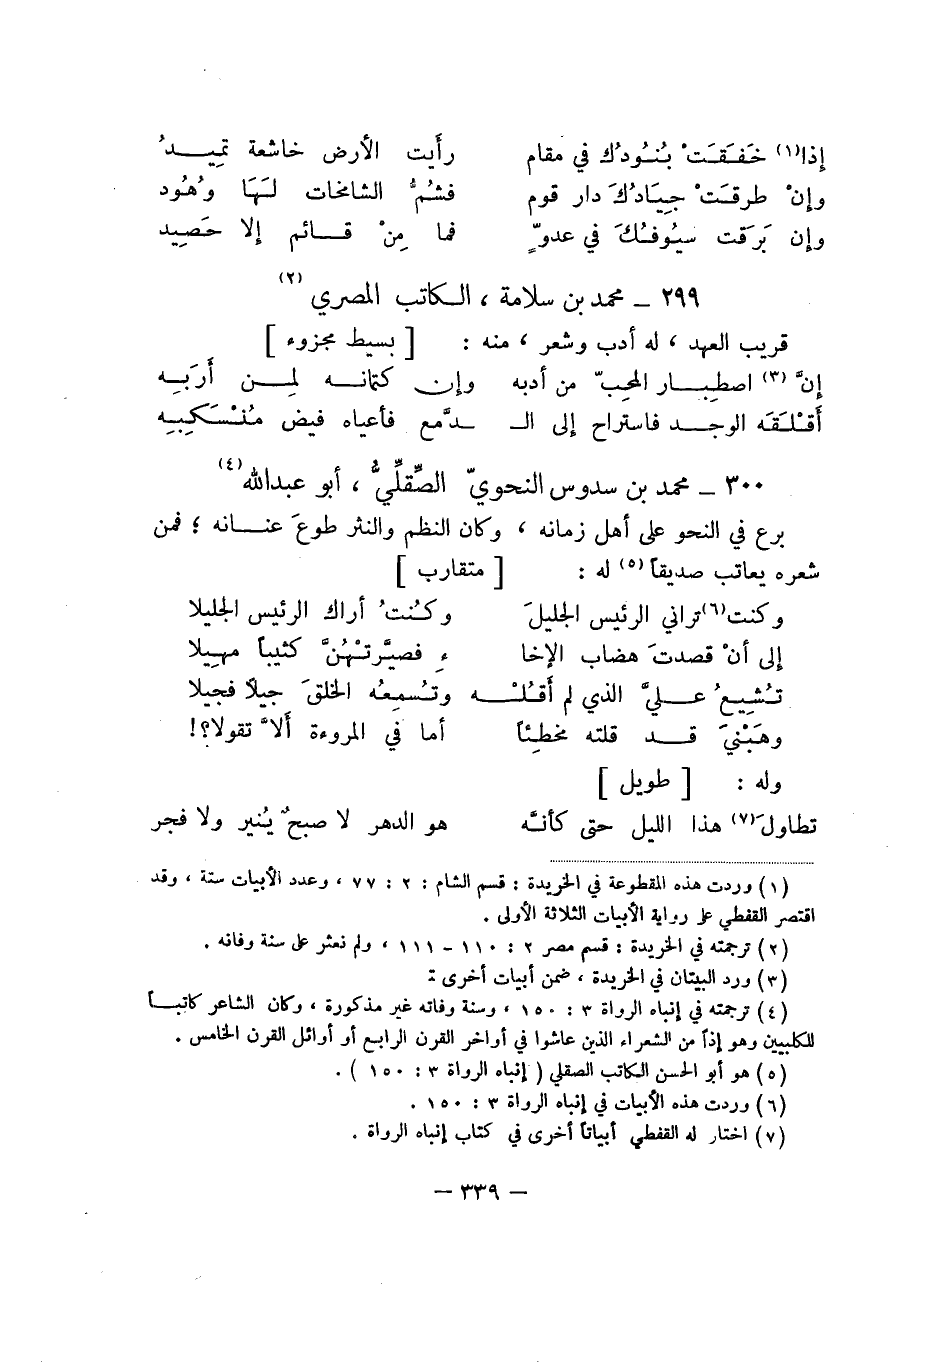 إذا(١) خَفَقَتْ بُنُودُك في مقام رأَيت الأرض خاشعة تميدُ
وإنْ طرقَتْ جِيَادُكَ دار قوم فشُمُّ الشامخات لَهَا وُهُود
وإن بَرَقت سيُوفُكَ في عدوٍّ فما مِنْ قائم إلا حَصِيد
٢٩٩ ـ محمد بن سلامة ، الكاتب المصري (٢)
قريب العهد ، له أدب وشعر ، منه : [ بسيط مجزوء ]
إنَّ (٣) اصطِبار المحبّ من أدبه وإن كتمانه لمن أَرَبِه
أَقْلَقَه الوجد فاستراح إلى الـ ـدَّمع فأعياه فيض مُنْسَكِبِه
٣٠٠ ـ محمد بن سدوس النحويّ الصِّقلِّيُّ ، أبو عبدالله (٤)
برع في النحو على أهل زمانه ، وكان النظم والنثر طوعَ عنانه ؛ فمن
شعره يعاتب صديقاً (٥) له : [ متقارب ]
وكنت(٦) تراني الرئيس الجليلَ وكُنتُ أراك الرئيس الجليلا
إلى أنْ قصدتَ هضاب الإخا ءِ فصيَّرتْهُنَّ كثيباً مهيلا
تُشيعُ عليَّ الذي لم أَقُلْه وتُسمِعُه الخلقَ جيلاً فجيلا
وهَبْنيَ قد قلته مخطِئاً أما في المروءة أَلاَّ تقولا؟!
وله : [ طويل ]
تطاولَ(٧) هذا الليل حتى كأنَّه هو الدهر لا صبحٌ يُنير ولا فجر
(١) وردت هذه المقطوعة في الخريدة : قسم الشام : ٢ : ٧٧ ، وعدد الأبيات ستة ، وقد
اقتصر القفطي على رواية الأبيات الثلاثة الأولى .
(٢) ترجمته في الخريدة : قسم مصر ٢ : ١١٠ – ١١١ ، ولم نعثر على سنة وفاته .
(٣) ورد البيتان في الخريدة ، ضمن أبيات أخرى :
(٤) ترجمته في إنباه الرواة ٣ : ١٥٠ ، وسنة وفاته غير مذكورة ، وكان الشاعر كاتباً
للكلبيين وهو إذاً من الشعراء الذين عاشوا في أواخر القرن الرابع أو أوائل القرن الخامس .
(٥) هو أبو الحسن الكاتب الصقلي ( إنباه الرواة ٣ : ١٥٠ ) .
(٦) وردت هذه الأبيات في إنباه الرواة ٣ : ١٥٠ .
(٧) اختار له القفطي أبياتاً أخرى في كتاب إنباه الرواة .
– ٣٣٩ –